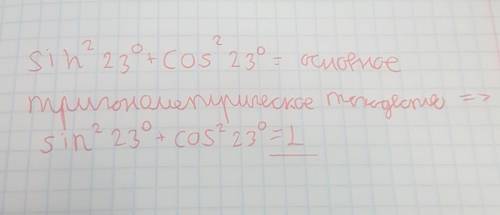 sin² 23° + cos² 23° = основное
тригонометрическое тождество =>
sin² 23° + cos² 23° = 1